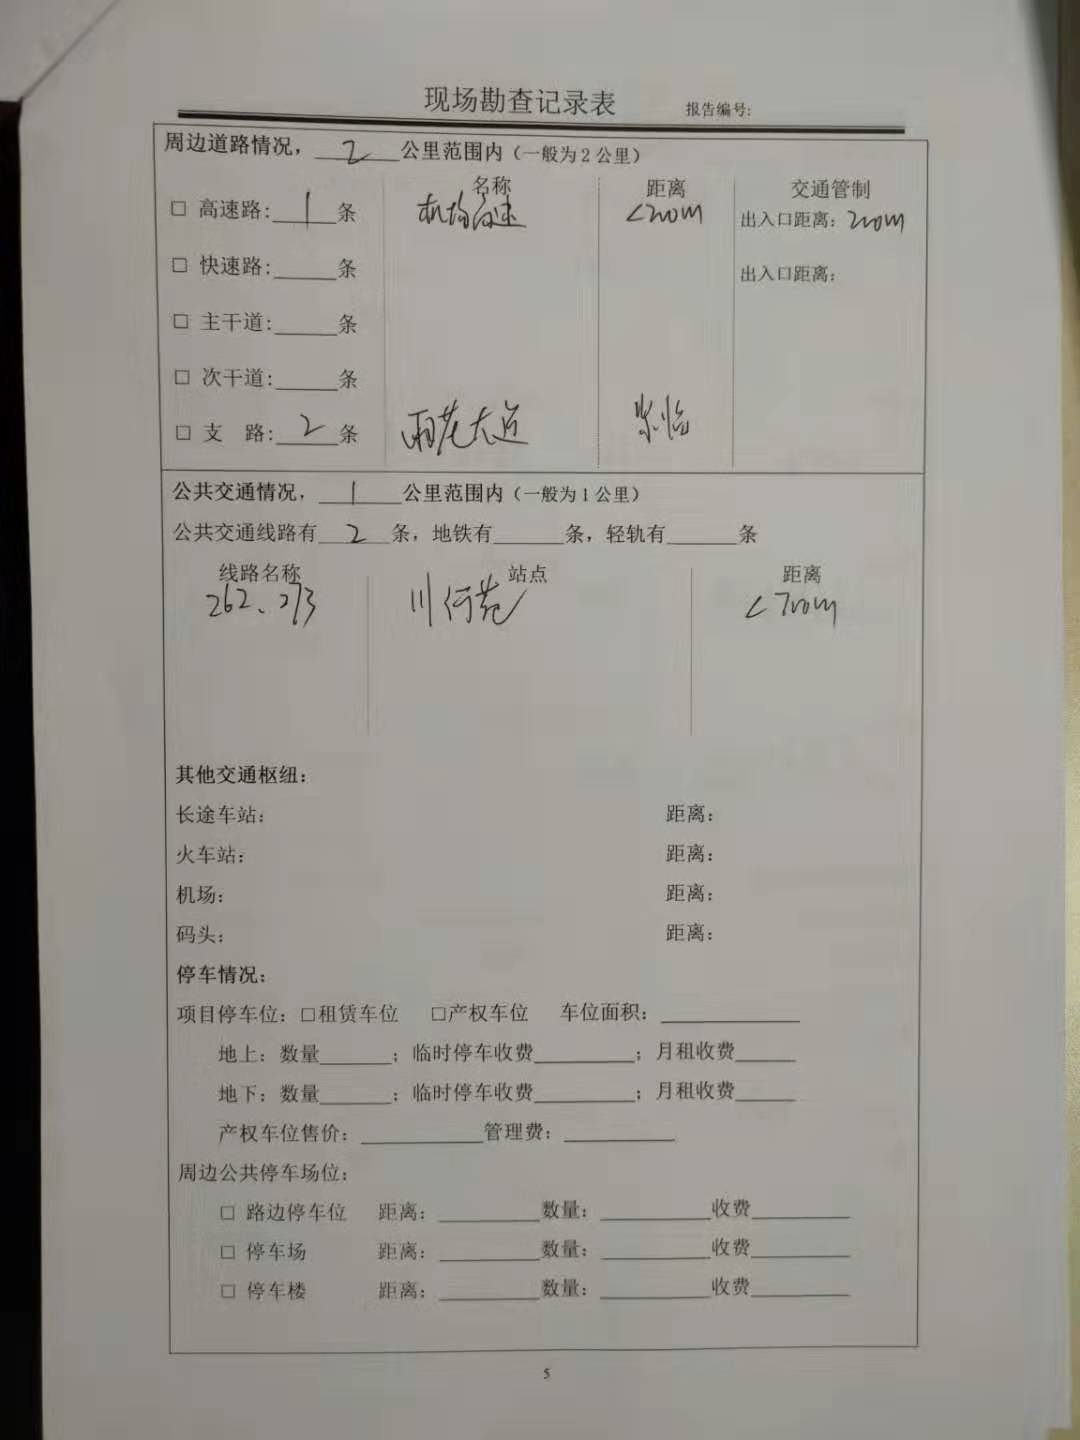 现场勘查记录表 报告编号:
周边道路情况，2公里范围内（一般为2公里）
名称 距离 交通管制
□ 高速路:1条 机场高速 <200m 出入口距离：200m
□ 快速路:______条 出入口距离：
□ 主干道:______条
□ 次干道:______条
□ 支 路:2条 雨花大道 紧临
公共交通情况，1公里范围内（一般为1公里）
公共交通线路有2条，地铁有______条，轻轨有______条
线路名称 站点 距离
262、273 <700m
其他交通枢纽：
长途车站： 距离：
火车站： 距离：
机场： 距离：
码头： 距离：
停车情况：
项目停车位：□租赁车位 □产权车位 车位面积：____________
地上：数量______；临时停车收费_________；月租收费_____
地下：数量______；临时停车收费_________；月租收费_____
产权车位售价：___________管理费：__________
周边公共停车场位：
□ 路边停车位 距离：_________数量：__________收费_________
□ 停车场 距离：_________数量：__________收费_________
□ 停车楼 距离：_________数量：__________收费_________
5